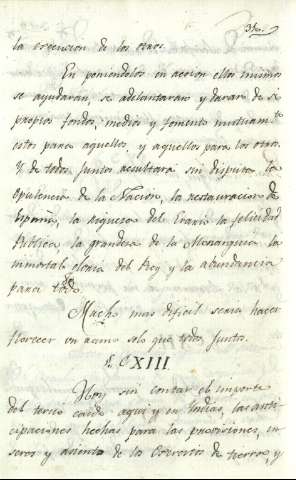 la esencion de los otros.
En poniendolos en accion ellos mismos
se ayudaran, se adelantaran y daran de si
propios fondos, medios y fomento mutuamte
estos para aquellos, y aquellos para los otros.
Y de todos juntos resultará sin disputa la
opulencia de la Nacion, la restauracion de
España, la riqueza del Erario la felicidad
Publica, la grandeza de la Monarquia la
inmortal gloria del Rey y la abundancia
para todo.
Mucho mas dificil seria hacer
florecer un ramo solo que todos juntos.
XIII
Hoy sin contar el importe
del tercio caido aqui y en Indias, las anti
cipaciones hechas para las provisiones, en
seros y asiento de la de tierra, y